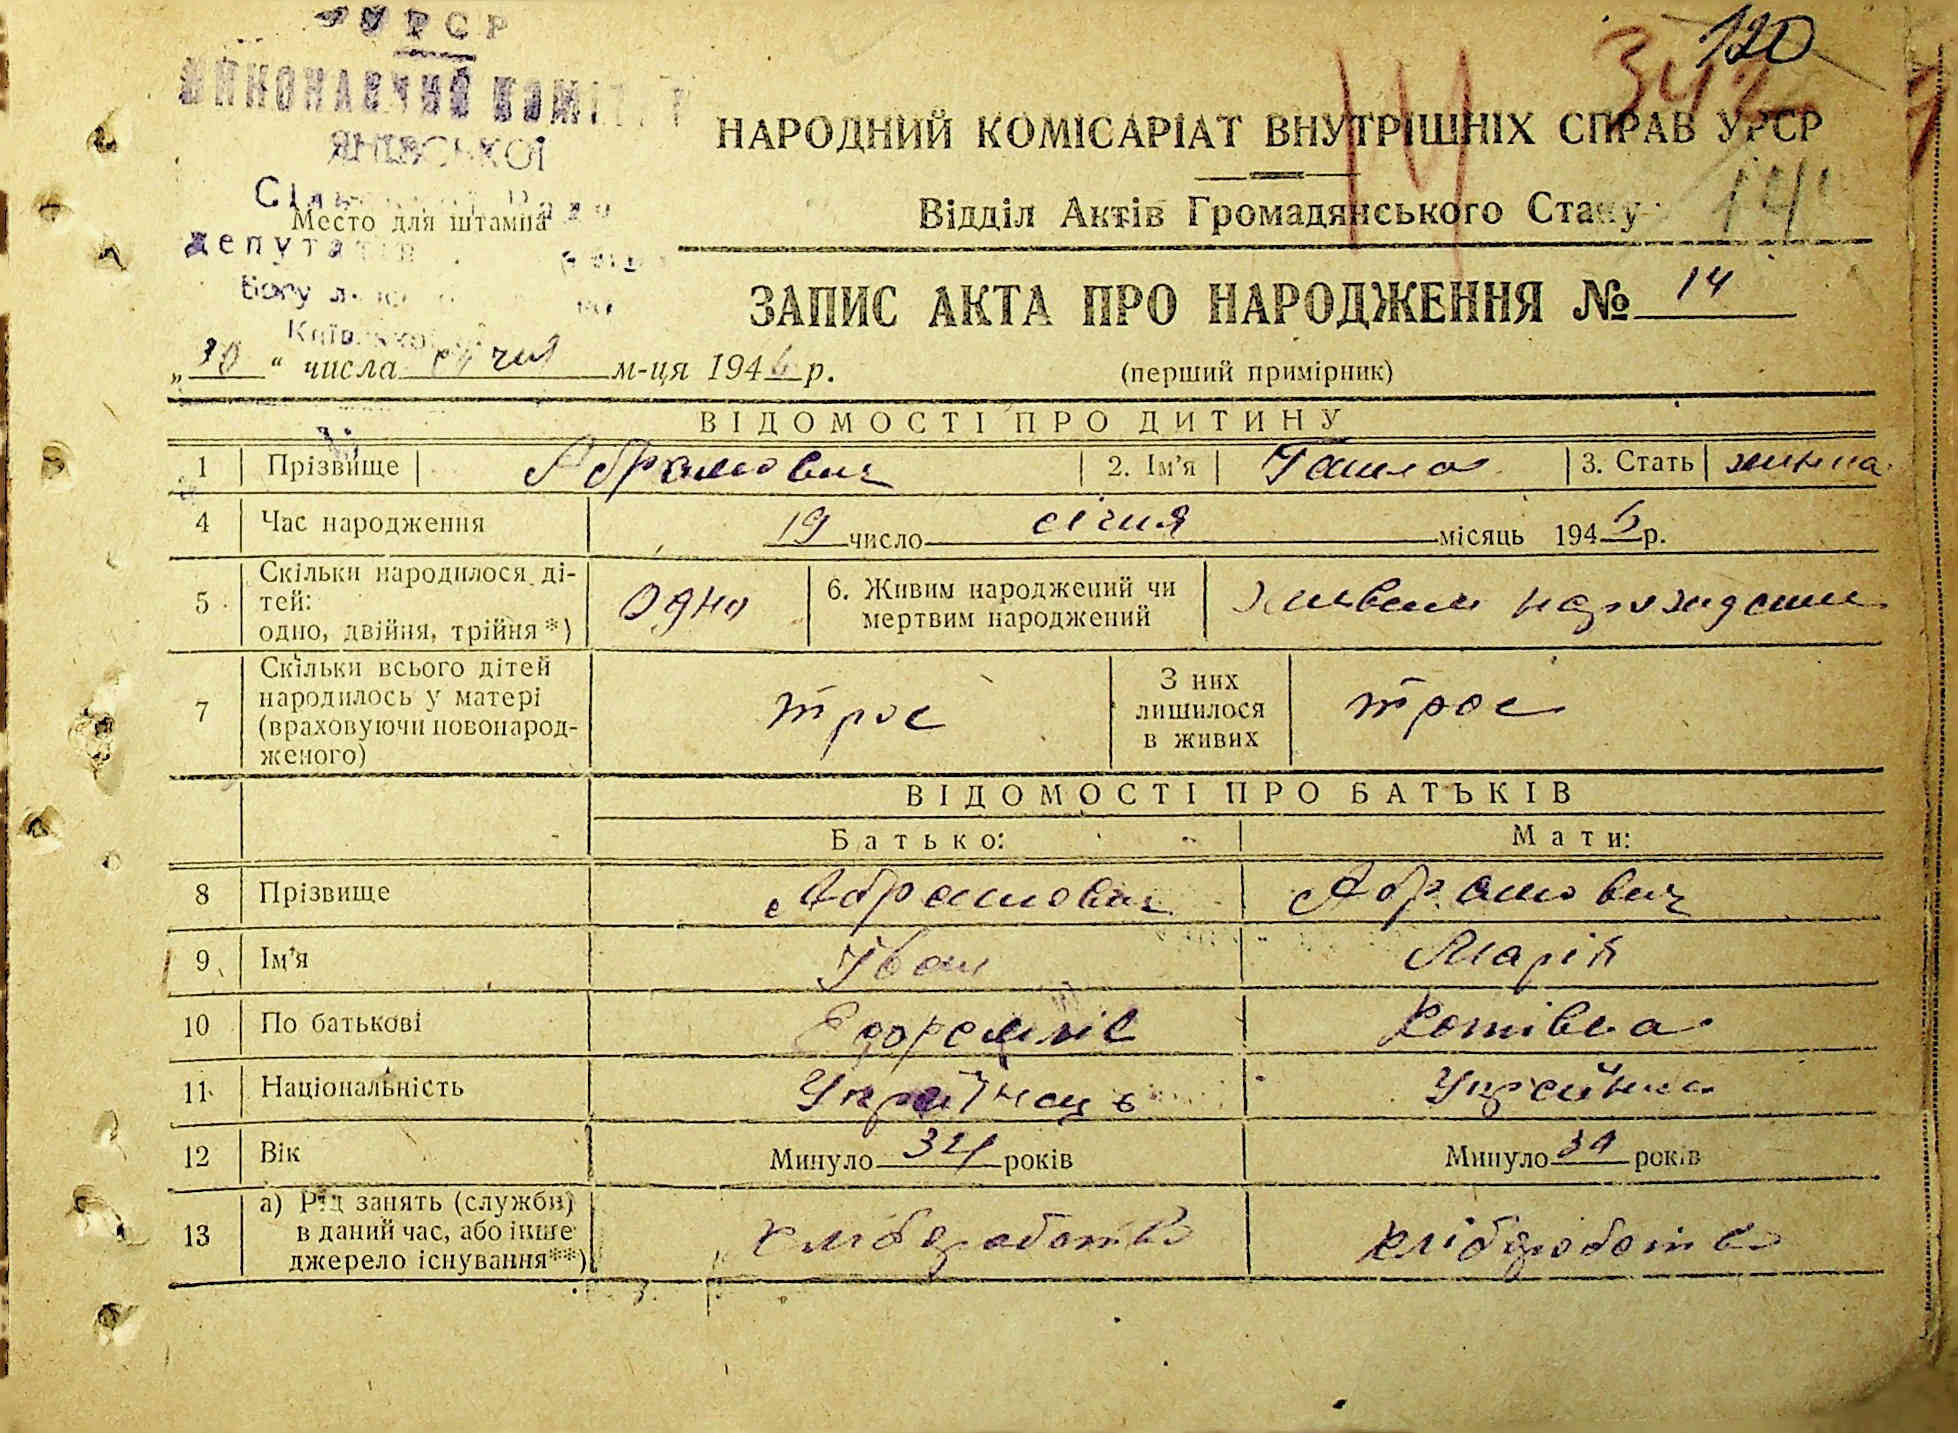 УРСР
120
342
ЯНІВСЬКОЇ
НАРОДНИЙ КОМІСАРІАТ ВНУТРІШНІХ СПРАВ УРСР
Місто для штампа
депутатів
Відділ Актів Громадянського Стану
14
ЗАПИС АКТА ПРО НАРОДЖЕННЯ № 14
„30“ числа січня м-ця 194 р.
(перший примірник)
ВІДОМОСТІ ПРО ДИТИНУ
1 Прізвище Абрамович 2. Ім'я Ганна 3. Стать жіноча
4 Час народження 19 число січня місяць 1945 р.
5 Скільки народилося ді-
тей:
одно, двійня, трійня*) одно 6. Живим народжений чи
мертвим народжений живим народжений
7 Скільки всього дітей
народилось у матері
(враховуючи новонарод-
женого) троє З них
лишилося
в живих троє
ВІДОМОСТІ ПРО БАТЬКІВ
Батько: Мати:
8 Прізвище Абрамович Абрамович
9 Ім'я Іван Марія
10 По батькові
11 Національність Українець Українка
12 Вік Минуло 34 років Минуло років
13 а) Рід занять (служби)
в даний час, або інше
джерело існування**)